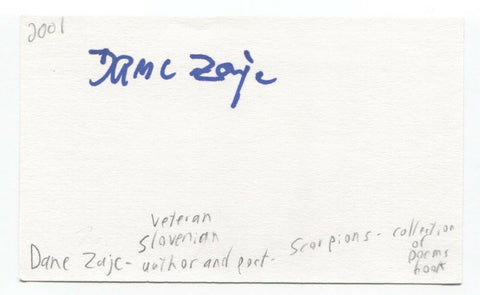 2001
Dane Zajc
veteran
Slovenian
Dane Zajc - author and poet - Scorpions - collection
of
poems
book